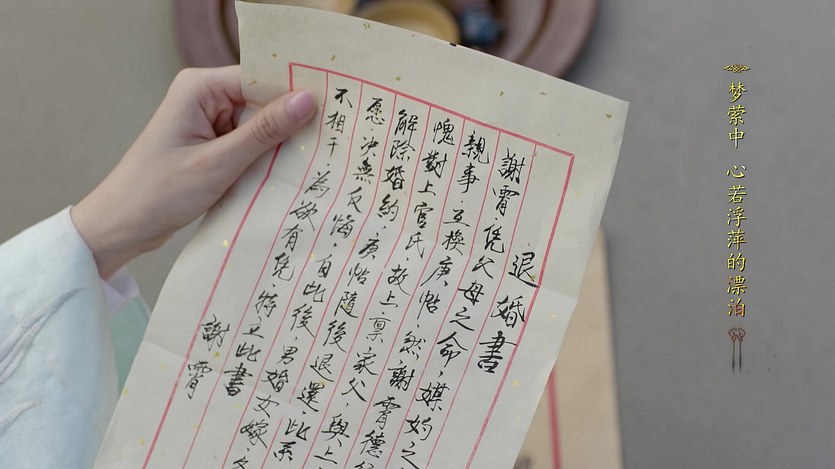 梦萦中 心若浮萍的漂泊
退婚書
謝霄,凭父母之命,媒妁之
親事,互換庚帖 然謝霄德
愧對上官氏 故上稟家父 與上
解除婚約,庚帖隨後退還,此系
愿,决無反悔,自此後,男婚女嫁,
不相干 為欲有凭,特立此書
謝霄